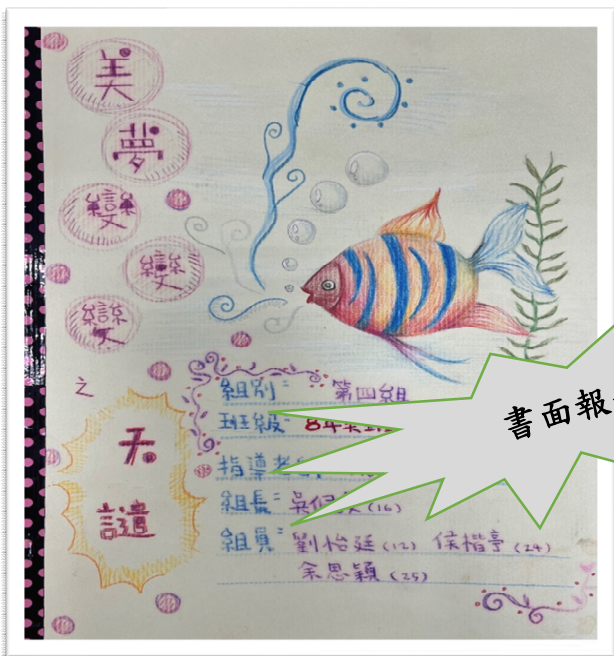 美
夢
變
變
變
之
天
譴
組別： 第四組
班級：
指導
組長： 吳
(16)
組員： 劉怡廷(12) 侯楷亭(24)
余思穎(25)
書面報